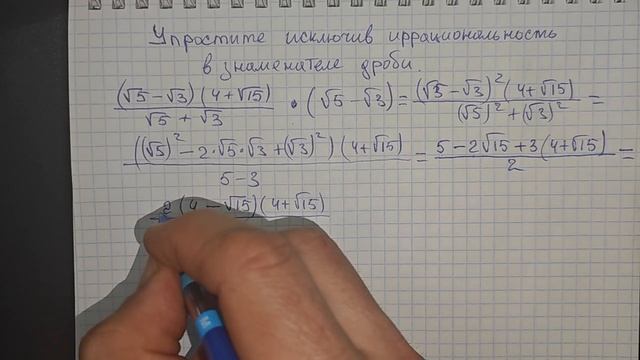 Упростите исключив иррациональность
в знаменателе дроби.
(√5 − √3)(4+√15) / √5 + √3 • (√5 − √3) = (√3 − √3)² (4+√15) / (√5)² + (√3)² =
((√5)² − 2·√5·√3 + (√3)²)(4+√15) / 5−3 = 5 − 2√15 + 3(4+√15) / 2 =
2(4 − √15)(4+√15)